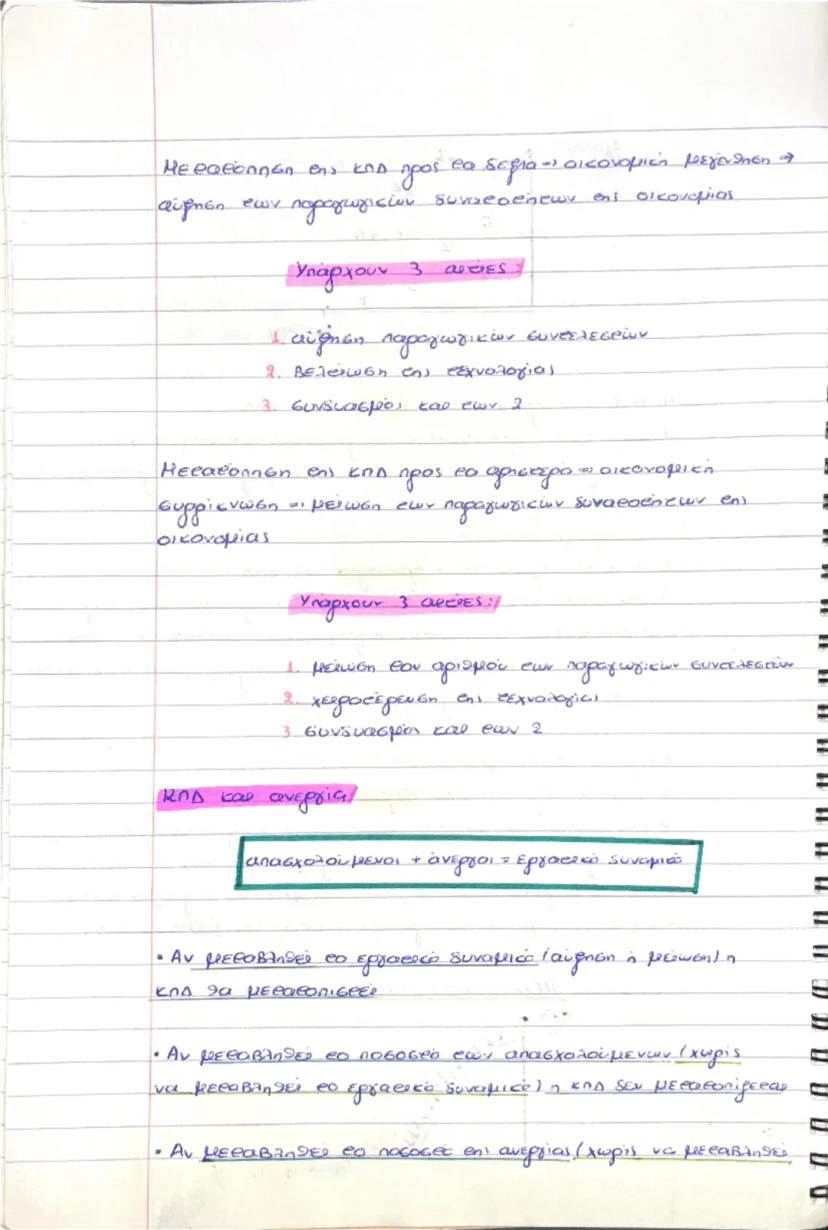 Μετατόπιση της ΚΠΔ προς τα δεξιά → οικονομική μεγέθηση →
αύξηση των παραγωγικών δυνατοτήτων της οικονομίας
Υπάρχουν 3 αιτίες:
1. αύξηση παραγωγικών συντελεστών
2. Βελτίωση της τεχνολογίας
3. συνδυασμός και των 2
Μετατόπιση της ΚΠΔ προς τα αριστερά → οικονομική
συρρίκνωση → μείωση των παραγωγικών δυνατοτήτων της
οικονομίας
Υπάρχουν 3 αιτίες:
1. μείωση του αριθμού των παραγωγικών συντελεστών
2. χειροτέρευση της τεχνολογίας
3. συνδυασμός και των 2
ΚΠΔ και ανεργία
απασχολούμενοι + άνεργοι = εργατικό δυναμικό
• Αν μεταβληθεί το εργατικό δυναμικό (αύξηση ή μείωση) η
ΚΠΔ θα μετατοπιστεί
• Αν μεταβληθεί το ποσοστό των απασχολούμενων (χωρίς
να μεταβληθεί το εργατικό δυναμικό) η ΚΠΔ δεν μετατοπίζεται
• Αν μεταβληθεί το ποσοστό της ανεργίας (χωρίς να μεταβληθεί